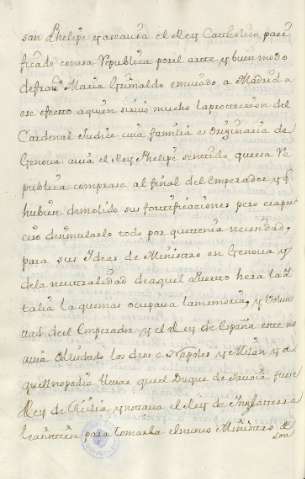 san Phelipe y estaua el Rey Catholico paci
ficado con esta Republica por el arte, y buen modo
de fran.co Maria Grimaldo embiado a Madrid a
ese efecto a quien siruio mucho la proteccion del
Cardenal Judice cuia familia es originaria de
Genoua auia el Rey Phelipe sentido, que esa Re
publica comprase al final del Emperador y q
hubiese demolido sus fortificaciones pero era pre
ciso disimularlo todo por que tenia necesidad,
para sus Ydeas de Ministro en Genoua y
de la neutralidad de aquel Puerto hera la Y
talia la que mas ocupaua la memoria, y Volun
tad del Emperador y el Rey de España este no
auia olbidado los dros a Napoles y Milan y a
quel no podia lleuar que el Duque de Sauoia fuese
Rey de Sicilia, y notaua el Rey de Ynglaterra
la para tomarla el nueuo Ministerio de